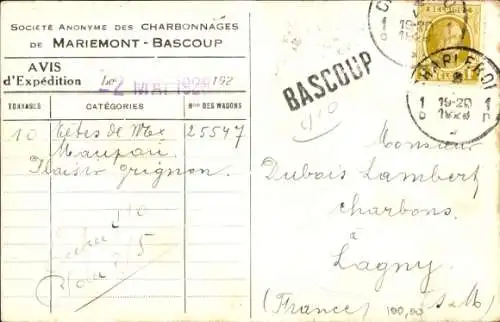 Société Anonyme des Charbonnages
de Mariemont-Bascoup
AVIS
d'Expédition Le 2 MAI 1928 192
TONNAGES CATÉGORIES Nros DES WAGONS
10 Têtes de Mx 25547
Maupau
Plaisir Grignon
BASCOUP
CHARLEROI
1 19-20 1
1928
Monsieur
Dubois Lambert
charbons.
à
Lagny
(France) (S-M)
100,00